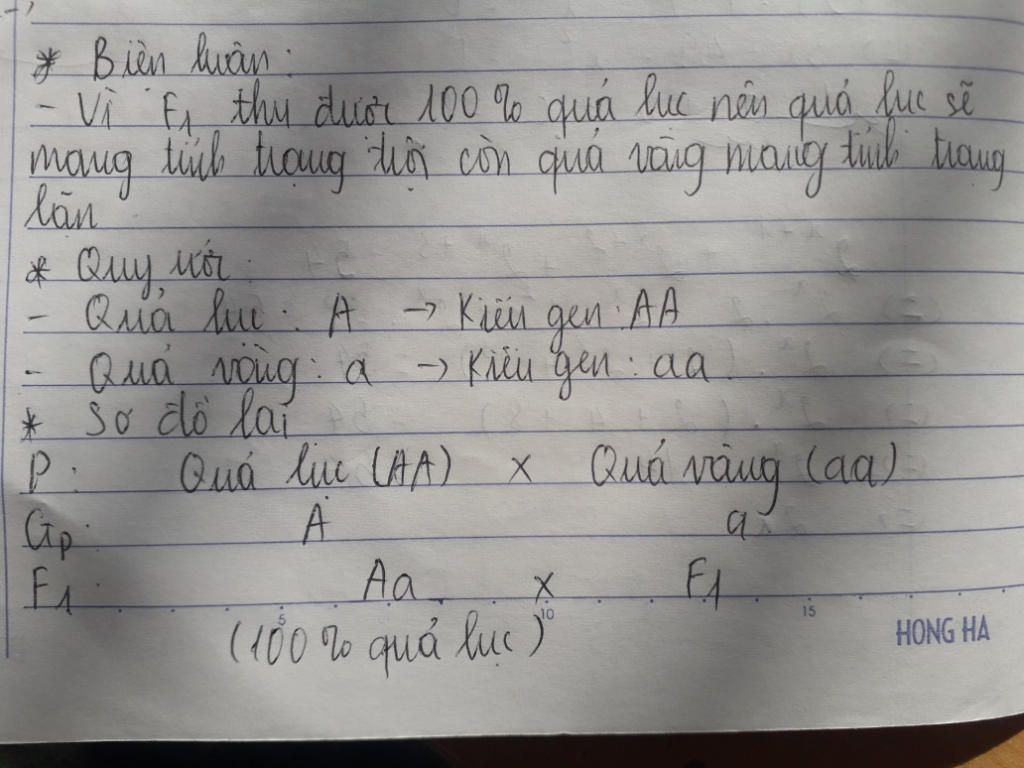 * Biện luận:
- Vì F1 thu được 100% quả lục nên quả lục sẽ
mang tính trạng trội còn quả vàng mang tính trạng
lặn
* Quy ước:
- Quả lục: A → Kiểu gen: AA
- Quả vàng: a → Kiểu gen: aa
* Sơ đồ lai
P: Quả lục (AA) x Quả vàng (aa)
Gp: A a
F1: Aa x F1
5 10 15
(100% quả lục)
HONG HA